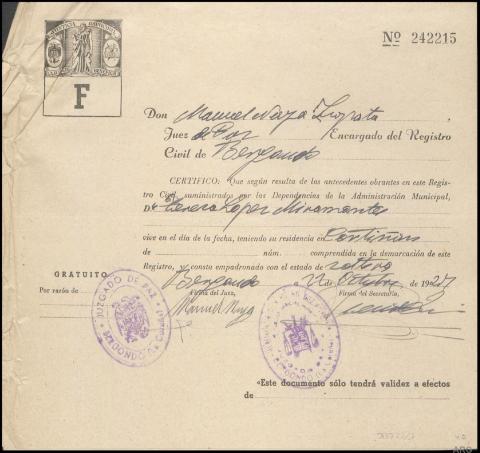 Nº 242215
F
Don Manuel
Juez de Paz, Encargado del Registro
Civil de Bergondo
CERTIFICO: Que según resulta de los antecedentes obrantes en este Regis-
tro Civil, suministrados por las Dependencias de la Administración Municipal,
D.ª Teresa López Miramontes
vive en el día de la fecha, teniendo su residencia en
de núm. comprendida en la demarcación de este
Registro, y consta empadronado con el estado de soltera
GRATUITO
Bergondo 22 de Octubre de 19
Por razón de
Firma del Juez,
Firma del Secretario,
Manuel
JUZGADO DE PAZ
BERGONDO
«Este documento sólo tendrá validez a efectos
de